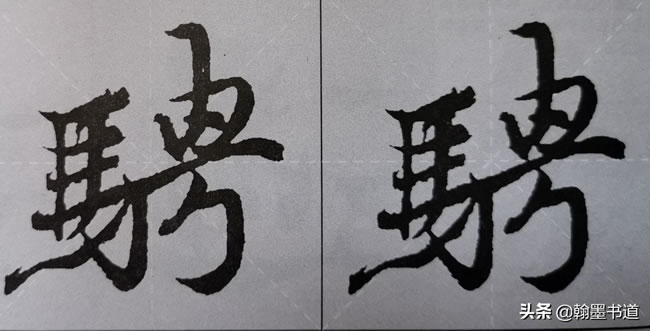 騁 騁
头条 @翰墨书道